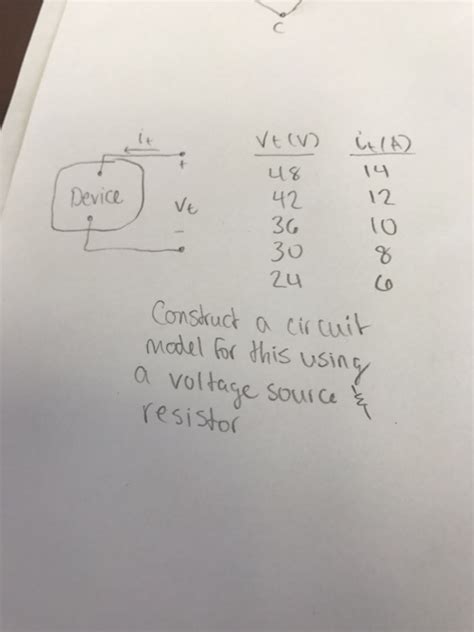 C
it
+
Device
Vt
-
Vt (V) it (A)
48 14
42 12
36 10
30 8
24 6
Construct a circuit
model for this using
a voltage source &
resistor